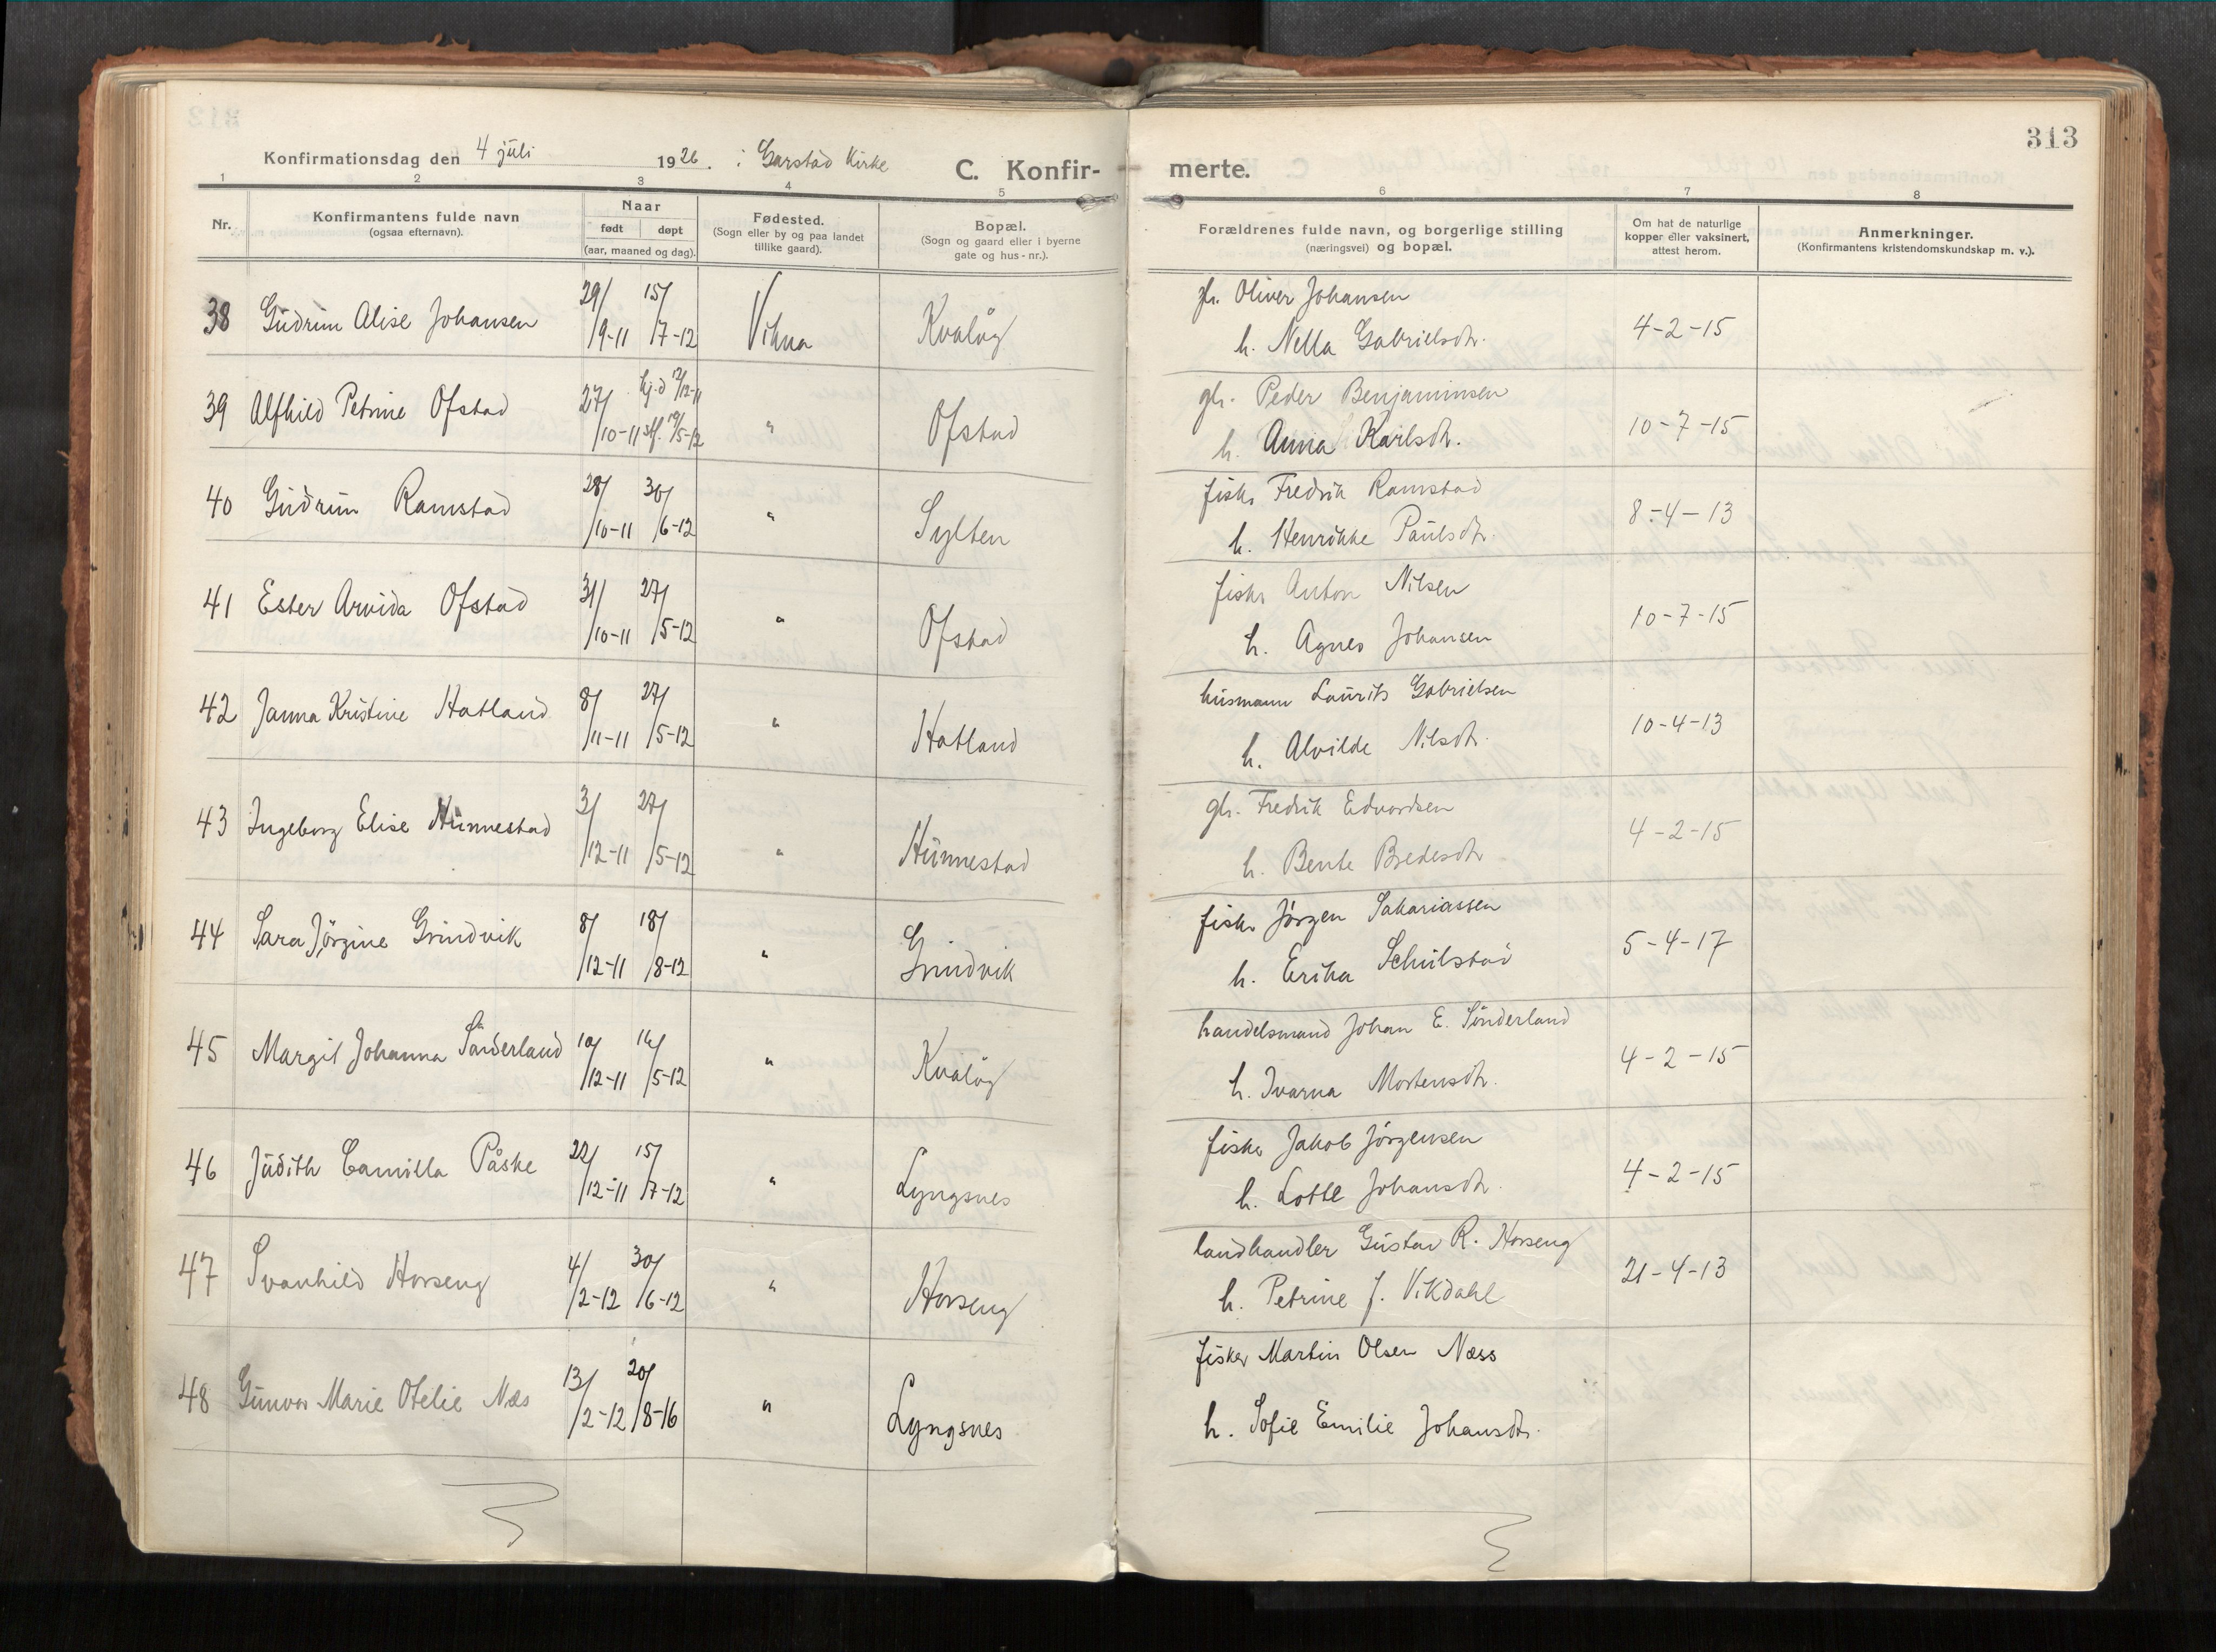 313
Konfirmationsdag den 4 juli 1926. i Garstad Kirke C. Konfir- merte.
1 2 3 4 5 6 7 8
Nr.
Konfirmantens fulde navn
(ogsaa efternavn).
Naar
født døpt
(aar, maaned og dag).
Fødested.
(Sogn eller by og paa landet
tillike gaard).
Bopæl.
(Sogn og gaard eller i byerne
gate og hus-nr.).
Forældrenes fulde navn, og borgerlige stilling
(næringsvei) og bopæl.
Om hat de naturlige
kopper eller vaksinert,
attest herom.
Anmerkninger.
(Konfirmantens kristendomskundskap m. v.).
38 Gudrun Alise Johansen 29/9-11 15/7-12 Vikna Kvaløy
Oliver Johansen
h. Nella Gabrielsdtr. 4-2-15
39 Alfhild Petrine Ofstad 27/10-11 hj.d 12/12-11 stf. 19/5-12 " Ofstad
gbr. Peder Benjaminsen
h. Anna Karlsdtr. 10-7-15
40 Gudrun Ramstad 28/10-11 30/6-12 " Sylten
fiskr Fredrik Ramstad
h. Henrikke Paulsdtr. 8-4-13
41 Ester Arvida Ofstad 31/10-11 27/5-12 " Ofstad
fiskr Anton Nilsen
h. Agnes Johansen 10-7-15
42 Janna Kristine Hatland 8/11-11 27/5-12 " Hatland
husmann Laurits Gabrielsen
h. Alvilde Nilsdtr. 10-4-13
43 Ingeborg Elise Hunnestad 3/12-11 27/5-12 " Hunnestad
gbr. Fredrik Edvardsen
h. Bente Bredesdtr 4-2-15
44 Sara Jörgine Grindvik 8/12-11 18/8-12 " Grindvik
fiskr Jörgen Sakariassen
h. Erika Schulstad 5-4-17
45 Margit Johanna Sönderland 10/12-11 16/5-12 " Kvaløy
handelsmand Johan E. Sönderland
h. Ivarna Mortensdtr. 4-2-15
46 Judith Camilla Påske 22/12-11 15/7-12 " Lyngsnes
fisker Jakob Jörgensen
h. Lotte Johansdtr. 4-2-15
47 Svanhild Horseng 4/2-12 30/6-12 " Horseng
landhandler Gustav R. Horseng
h. Petrine J. Vikdahl 21-4-13
48 Gunvor Marie Otelie Næs 13/2-12 20/8-16 " Lyngsnes
fisker Martin Olsen Næss
h. Sofie Emilie Johansdtr.